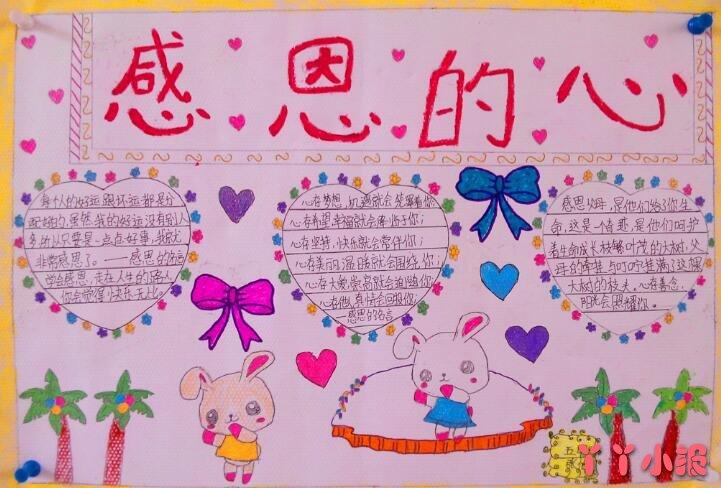 感恩的心
每个人的好运跟坏运都是分
配好的,虽然我的好运没有别人
多,所以只要是一点点好事,我就
非常感恩了。——感恩的名言
学会感恩,走在人生的路上
你会觉得快捷无比。
心在梦想,机遇就会笼罩着你
心在希望,幸福就会降临于你;
心在坚持,快乐就会常伴你;
心在美丽,温暖就会围绕你;
心在大爱,崇高就会追随你
心在他人,真情会回报你。
——感恩的名言
感恩父母,是他们给了你生
命,这是一个奇迹,是他们呵护
着生命成长枝繁叶茂的大树,父
母的牵挂与叮咛挂满了这棵
大树的枝丫,心存善念,
阳光会照耀你。
丫丫小报